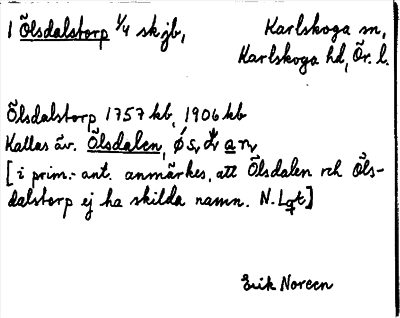 1 Ölsdalstorp 1/4 sk jb, Karlskoga sn,
Karlskoga hd, Ör. l.
Ölsdalstorp 1757 kb, 1906 kb
Kallas äv. Ölsdalen,
[i prim.-ant. anmärkes, att Ölsdalen och Öls-
dalstorp ej ha skilda namn. N. Lqt]
Erik Noreen